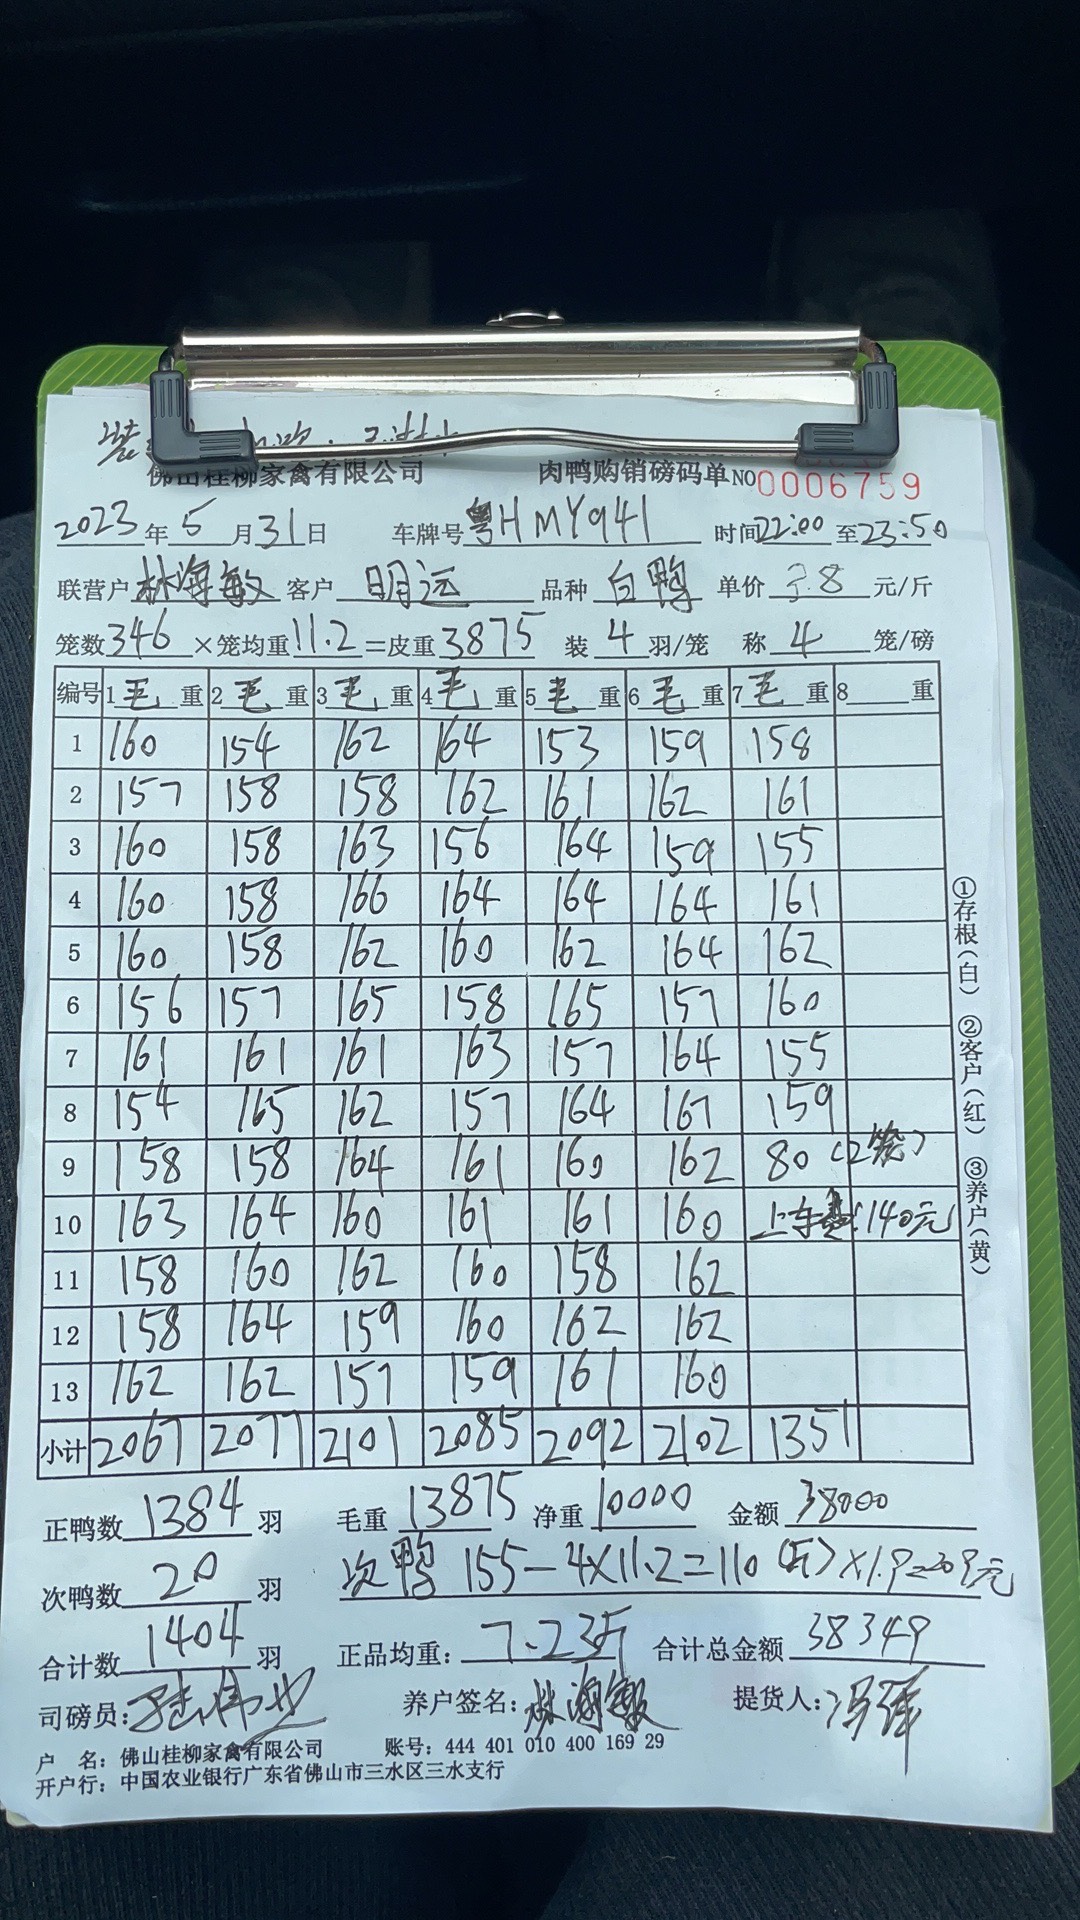 佛山桂柳家禽有限公司 肉鸭购销磅码单 NO 0006759
2023年5月31日 车牌号 粤HMY941 时间22:00至23:50
联营户 林海敏 客户 明远 品种 白鸭 单价 3.8 元/斤
笼数346×笼均重11.2=皮重3875 装4羽/笼 称4笼/磅
编号 1毛重 2毛重 3毛重 4毛重 5毛重 6毛重 7毛重 8重
1 160 154 162 164 153 159 158
2 157 158 158 162 161 162 161
3 160 158 163 156 164 159 155
4 160 158 166 164 164 164 161
5 160 158 162 160 162 164 162
6 156 157 165 158 165 157 160
7 161 161 161 163 157 164 155
8 154 165 162 157 164 167 159
9 158 158 164 161 160 162 80(2笼)
10 163 164 160 161 161 160 上车费:140元
11 158 160 162 160 158 162
12 158 164 159 160 162 162
13 162 162 157 159 161 160
小计 2067 2077 2101 2085 2092 2102 1351
①存根(白) ②客户(红) ③养户(黄)
正鸭数 1384 羽 毛重 13875 净重 10000 金额 38000
次鸭数 20 羽 次鸭 155-4×11.2=110(斤)×1.9=209元
合计数 1404 羽 正品均重: 7.23斤 合计总金额 38349
司磅员: 养户签名:林海敏 提货人:
户 名: 佛山桂柳家禽有限公司 账号: 444 401 010 400 169 29
开户行: 中国农业银行广东省佛山市三水区三水支行